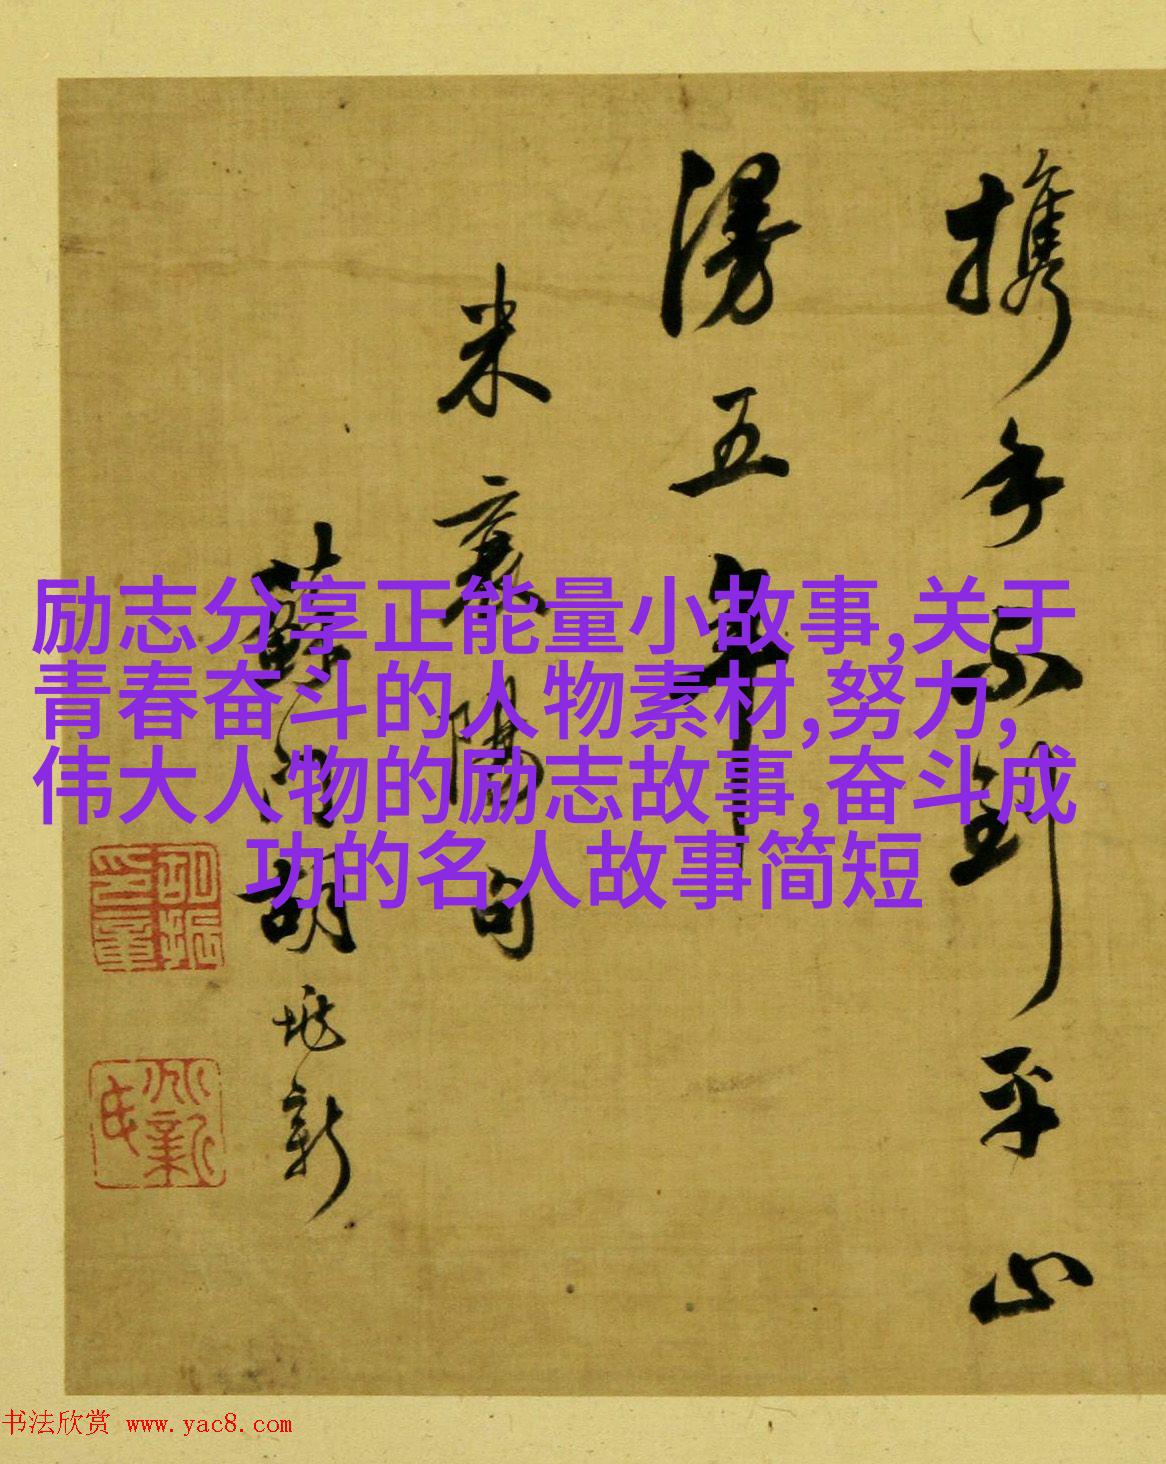 携手不到平山
漫五年
米襄陽句
蘇門胡兆新
励志分享正能量小故事,关于
青春奋斗的人物素材,努力,
伟大人物的励志故事,奋斗成
功的名人故事简短
书法欣赏 www.yac8.com